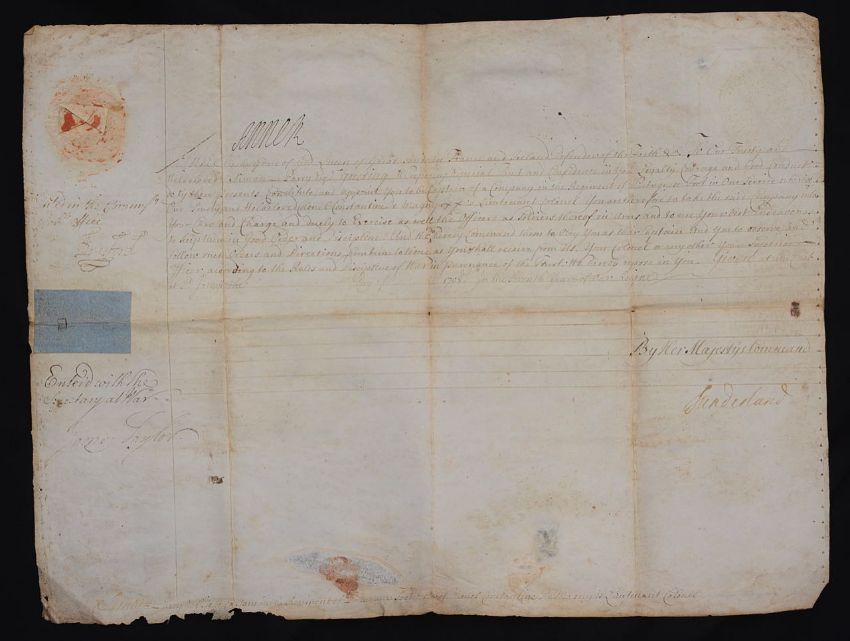 Anne R
by the Grace of God Queen of Great Britain France and Ireland Defender of the Faith &c. To Our Trusty and
Welbeloved Esqr. Greeting. We reposing especial Trust and Confidence in your Loyalty Courage and good Conduct
do by these presents Constitute and appoint You to be Captain of a Company in the Regiment of Portuguese Foot in Our Service whereof
Our Trusty and Welbeloved Constantine Magny is Lieutenant Colonel You are therefore to take the said Company into
Your Care and Charge and duely to Exercise as well the Officers as Soldiers thereof in Arms and to use Your best Endeavours
to keep them in Good Order and Discipline And We hereby Command them to Obey You as their Captain And You to observe and
follow such Orders and Directions from time to time as You shall receive from Us Your Colonel or any other Your Superior
Officer according to the Rules and Discipline of War in pursuance of the Trust We hereby repose in You Given at Our Court
at St. James's the day of 170 in the Year of Our Reigne
By Her Majestys Command
Sunderland
Office
Enter'd with the
Secretary at War
James Taylor
Captain in Regiment of Foot Constantine Magny Lieutenant Colonel